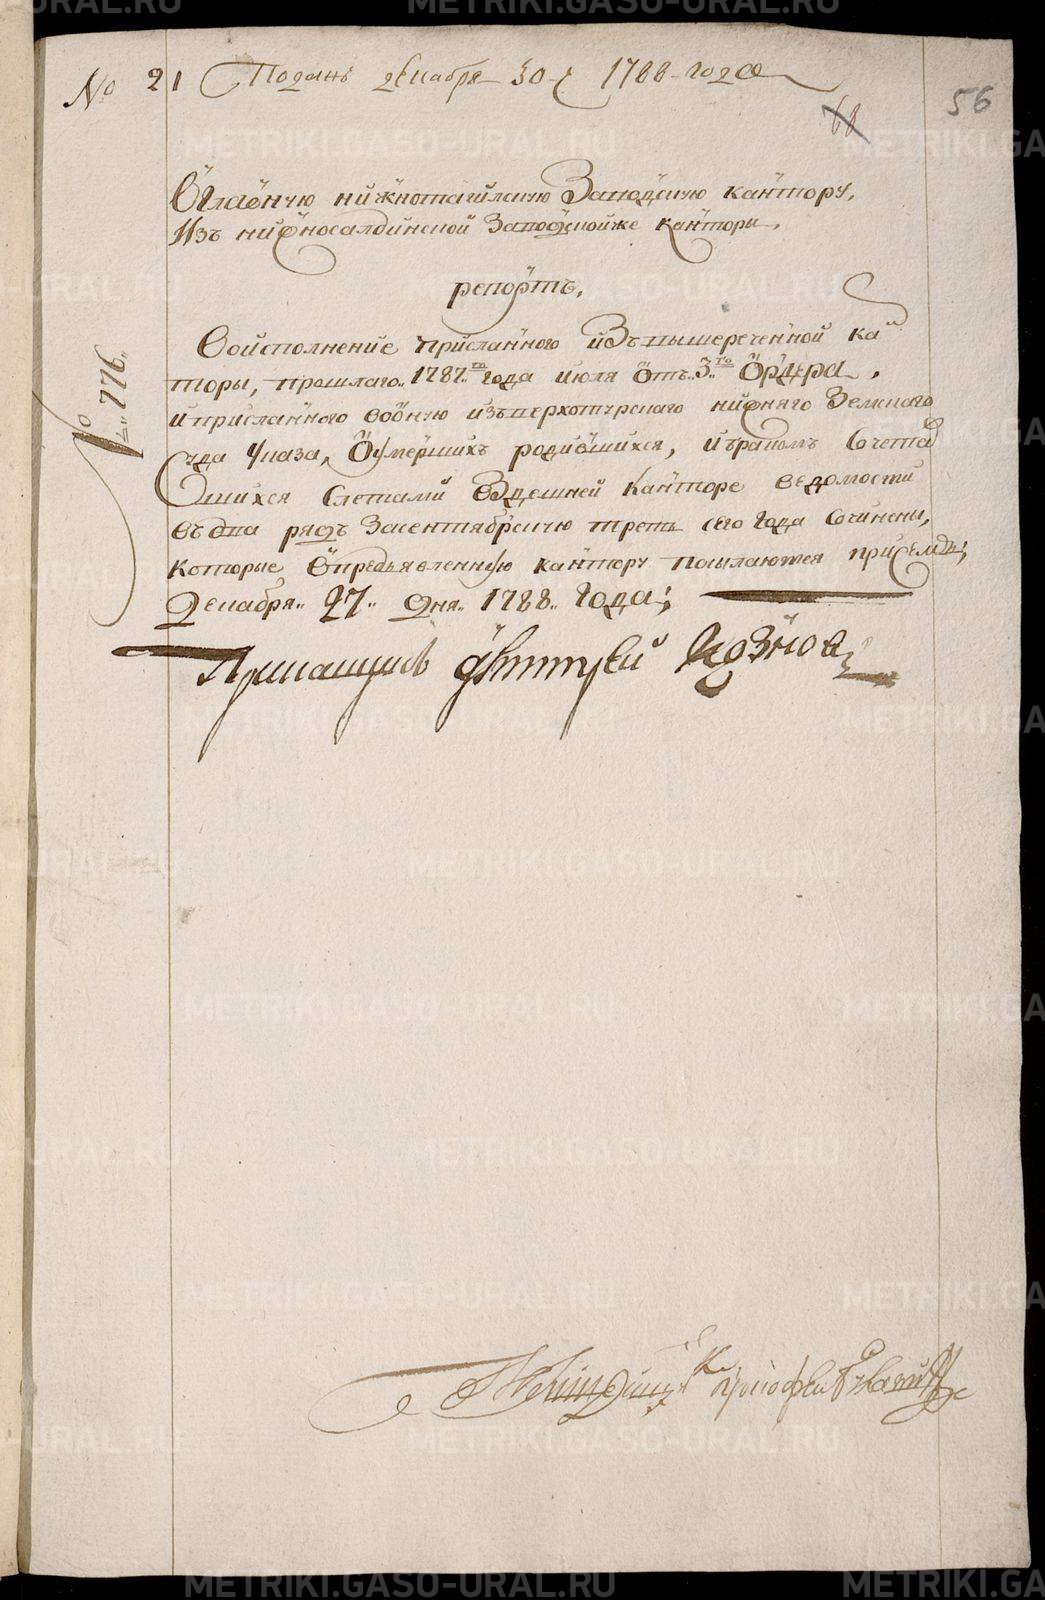 № 21 Поданъ декабря 30 ч 1788 года
68
56
Вглавную нижнотагилскую Заводскую кантору,
Изъ нижносалдинской Заводскойже канторы,
репортъ,
Воисполнение присланного изъ вышереченной кан
торы, прошлаго 1787 го года июля отъ 3 го Ордера,
и присланного воную изъ верхотурскаго нижняго Земскаго
суда Указа, Оумершихъ родившихся, ибракомъ Сочетав
Шихся Слетами Вздешней канторе ведомости
въ два рядъ Засентябрскую треть сего года Сочинены,
которые Впредъявленную кантору посылаются присемъ;
Декабря 27 дня 1788 года;
№ 776
Прикащикъ Козновъ